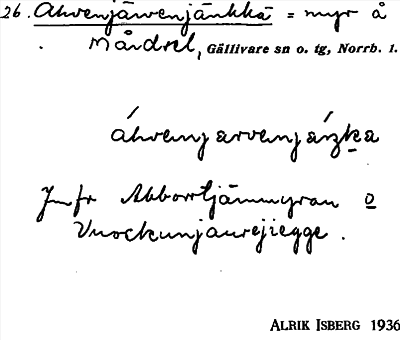 26. Ahvenjärvenjänkkä = myr å
Mårdsel, Gällivare sn o. tg, Norrb. l.
áhvenjarvenjáŋka
Jmfr Abborrtjärnmyran o
Vuoskunjaurejiegge.
ALRIK ISBERG 1936